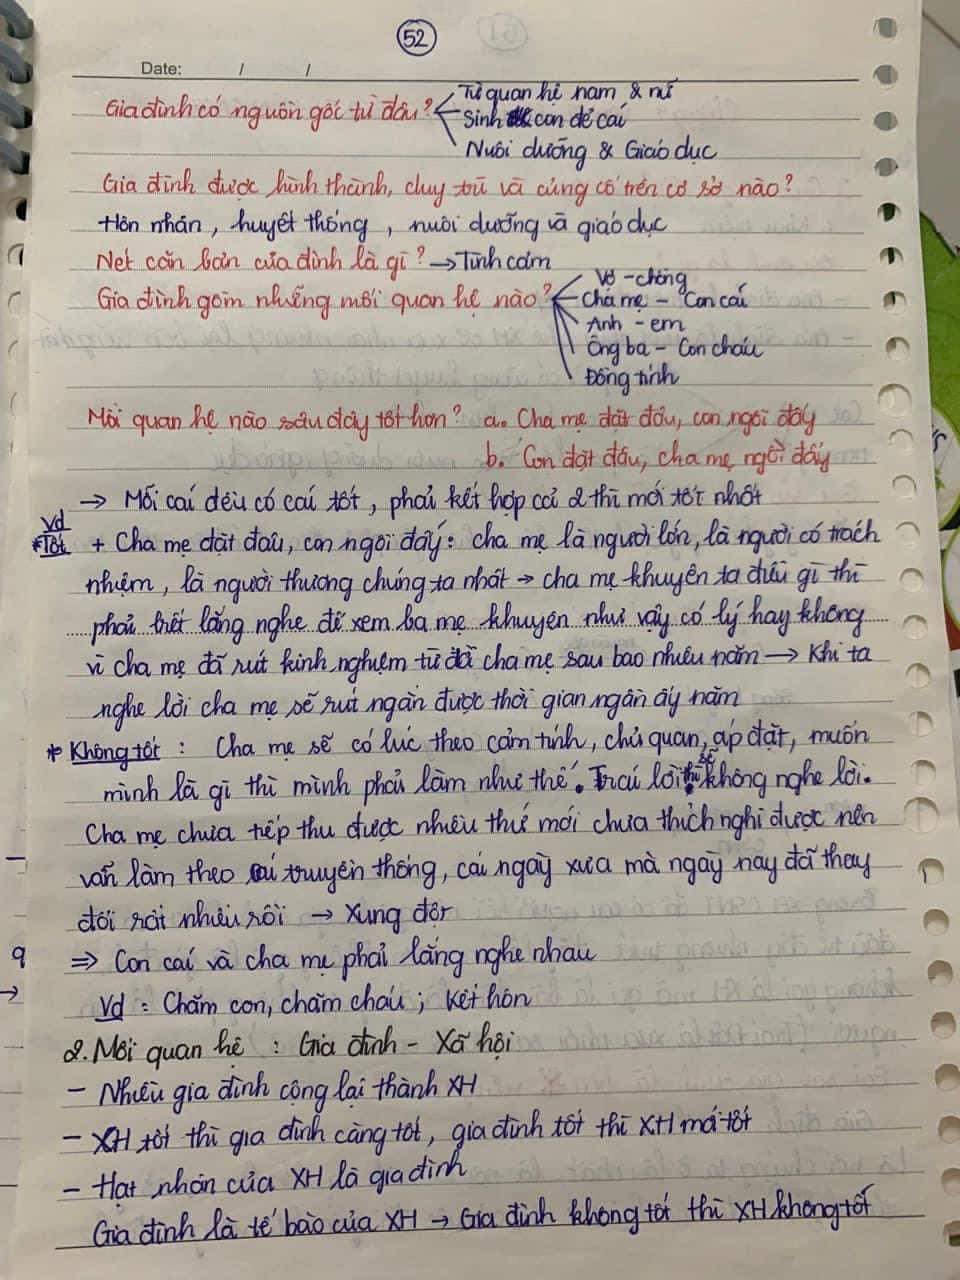 52
Date: / /
Gia đình có nguồn gốc từ đâu? Từ quan hệ nam & nữ
Sinh con đẻ cái
Nuôi dưỡng & Giáo dục
Gia đình được hình thành, duy trì và củng cố trên cơ sở nào?
Hôn nhân, huyết thống, nuôi dưỡng và giáo dục
Nét căn bản của đình là gì? → Tình cảm
Gia đình gồm những mối quan hệ nào? Vợ - chồng
Cha mẹ - Con cái
Anh - em
Ông bà - Con cháu
Đồng tính
Mối quan hệ nào sau đây tốt hơn? a. Cha mẹ đặt đâu, con ngồi đấy
b. Con đặt đâu, cha mẹ ngồi đấy
→ Mỗi cái đều có cái tốt, phải kết hợp cả 2 thì mới tốt nhất
Vd
*Tốt + Cha mẹ đặt đâu, con ngồi đấy: cha mẹ là người lớn, là người có trách
nhiệm, là người thương chúng ta nhất → cha mẹ khuyên ta điều gì thì
phải lắng nghe để xem ba mẹ khuyên như vậy có lý hay không
vì cha mẹ đã rút kinh nghiệm từ đời cha mẹ sau bao nhiêu năm → Khi ta
nghe lời cha mẹ sẽ rút ngắn được thời gian ngần ấy năm
* Không tốt: Cha mẹ sẽ có lúc theo cảm tính, chủ quan, áp đặt, muốn
mình là gì thì mình phải làm như thế. Trái lời sẽ không nghe lời.
Cha mẹ chưa tiếp thu được nhiều thứ mới chưa thích nghi được nên
vẫn làm theo cái truyền thống, cái ngày xưa mà ngày nay đã thay
đổi rất nhiều rồi → Xung đột
⇒ Con cái và cha mẹ phải lắng nghe nhau
Vd: Chăm con, chăm cháu; Kết hôn
2. Mối quan hệ: Gia đình - Xã hội
- Nhiều gia đình cộng lại thành XH
- XH tốt thì gia đình càng tốt, gia đình tốt thì XH mới tốt
- Hạt nhân của XH là gia đình
Gia đình là tế bào của XH → Gia đình không tốt thì XH không tốt